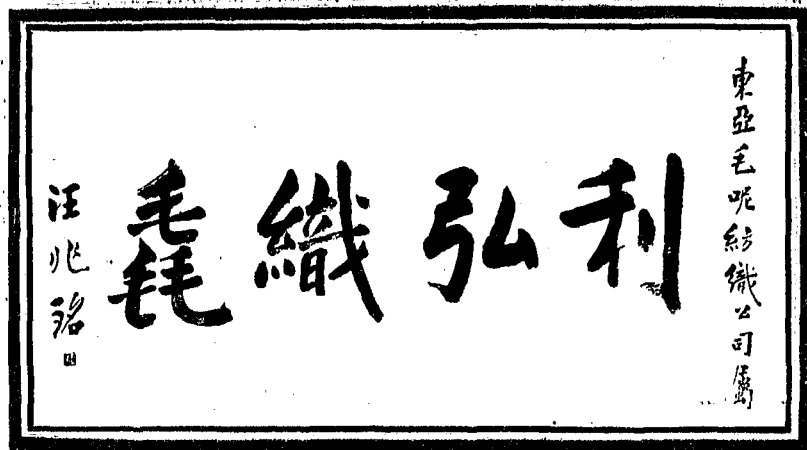 東亞毛呢紡織公司屬
利弘織毳
汪兆銘